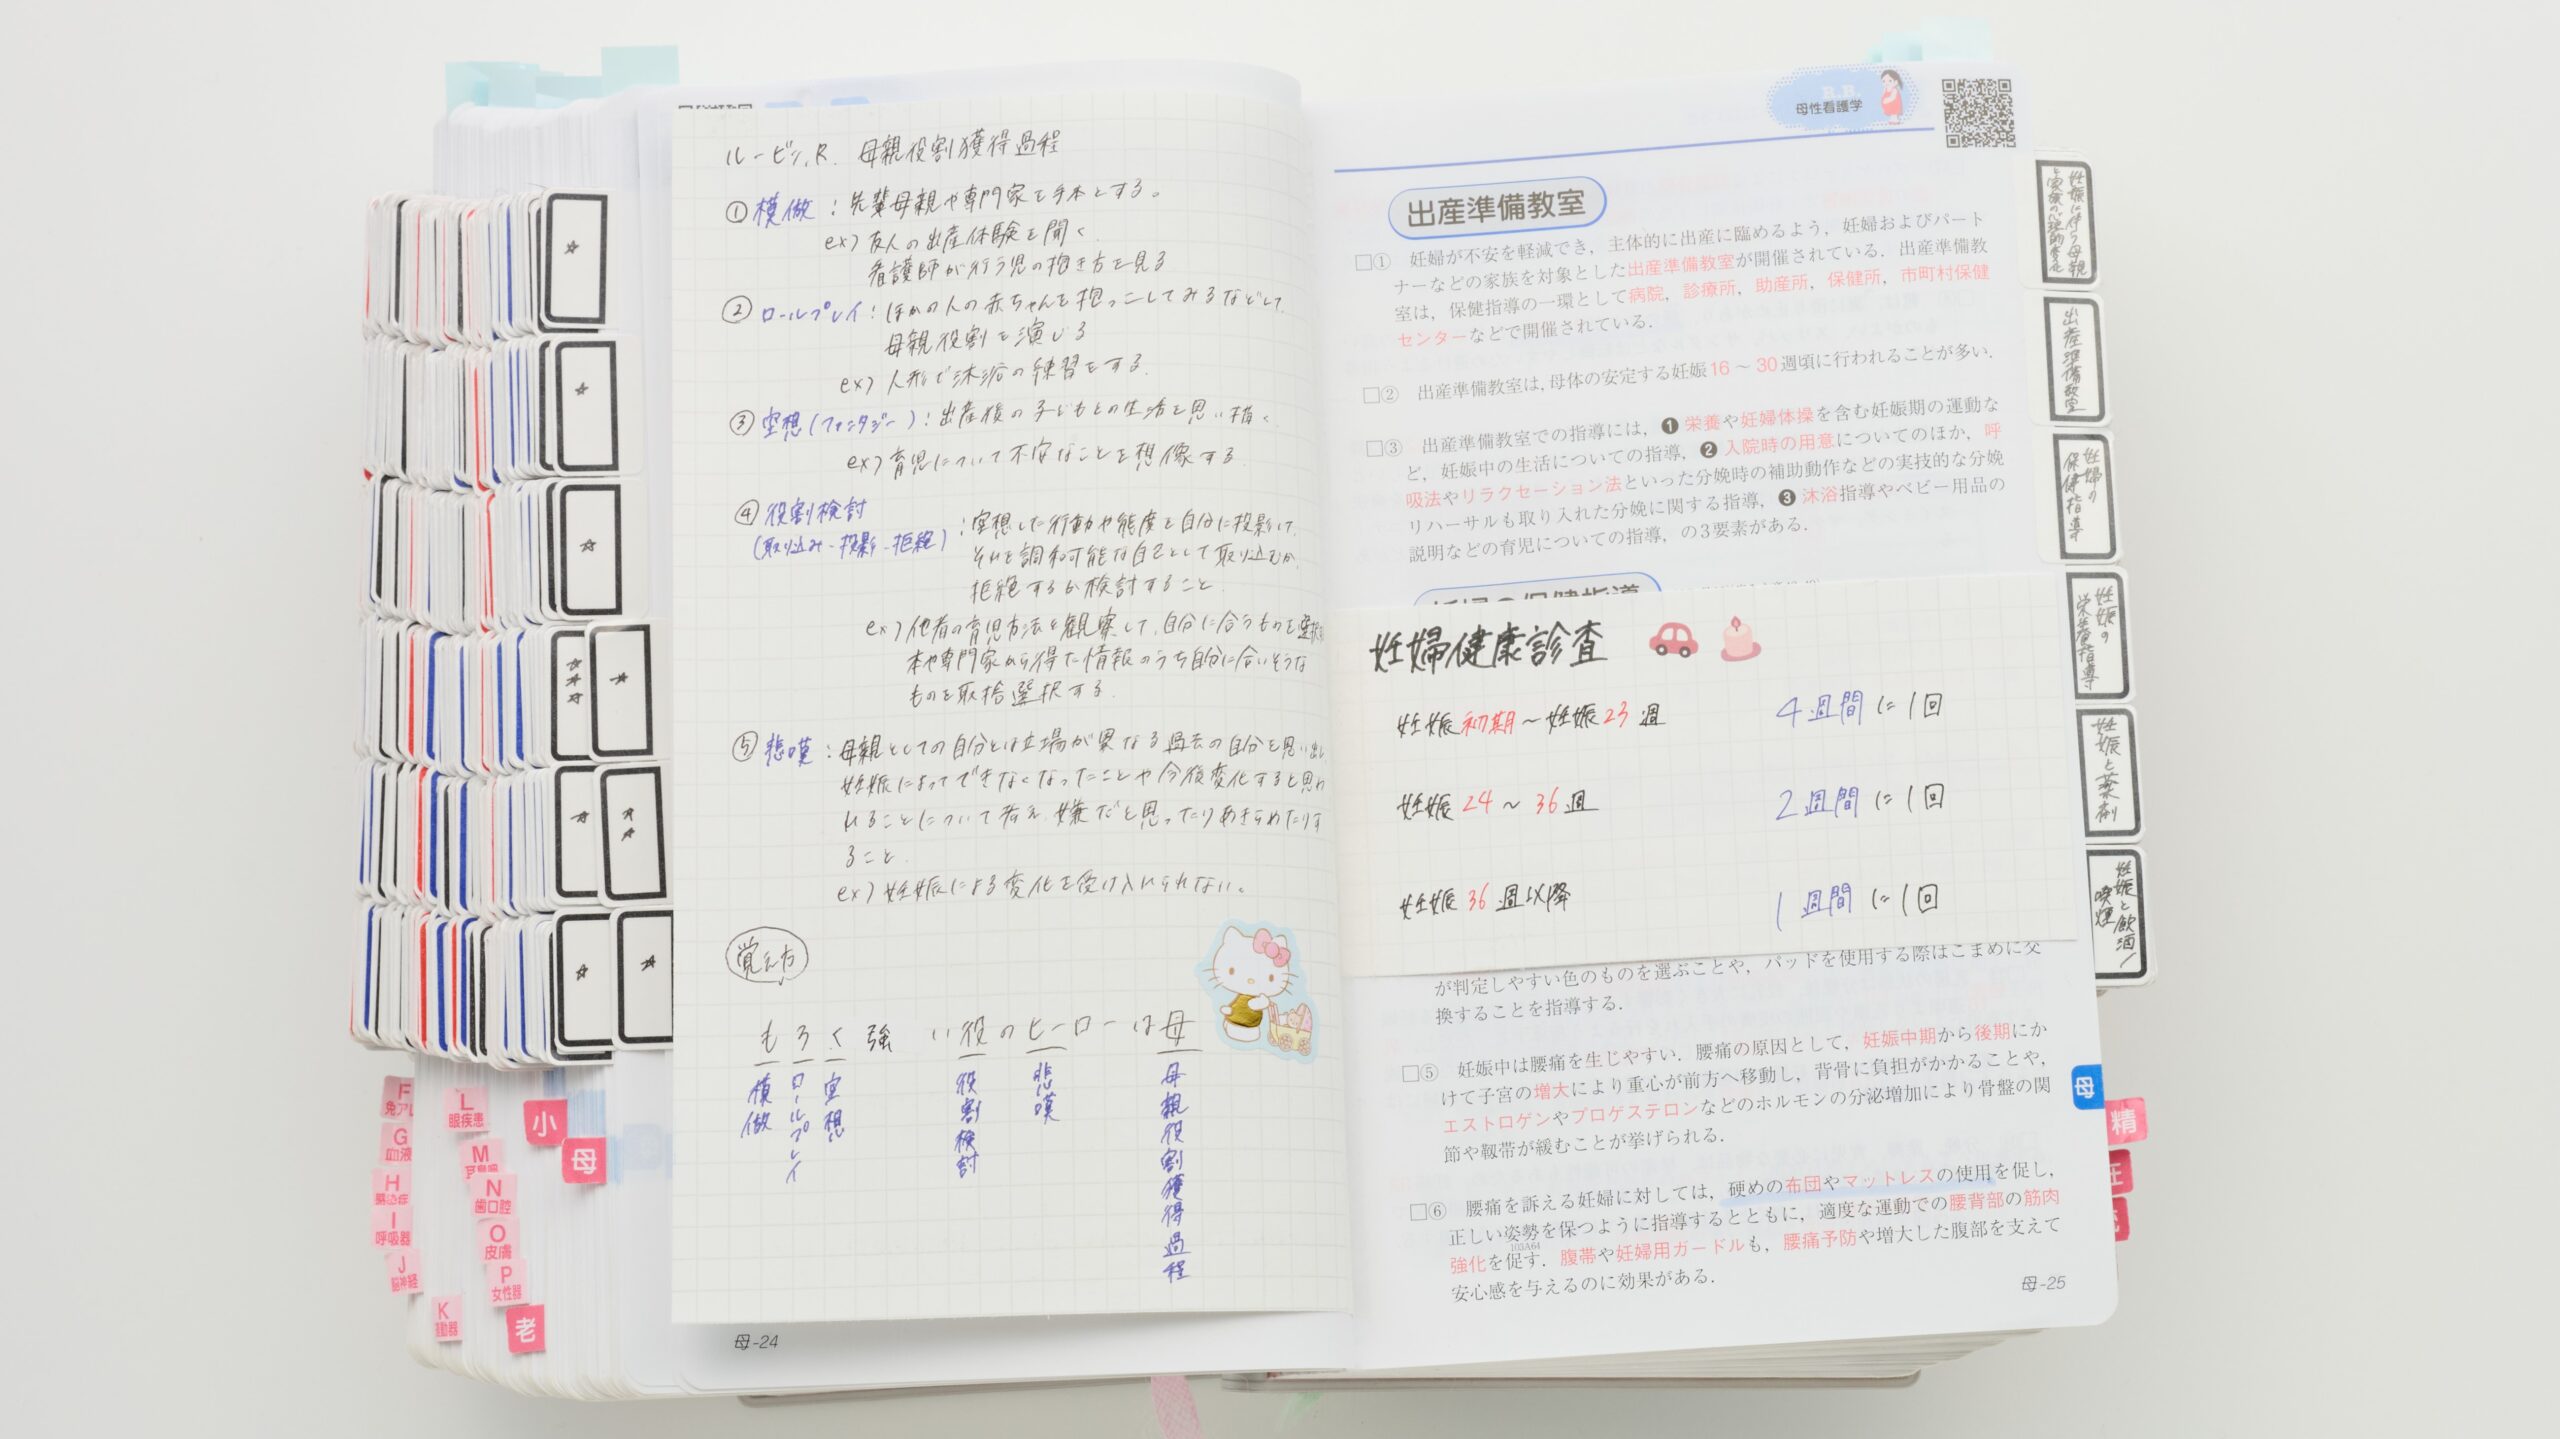 ルービン, R. 母親役割獲得過程
① 模倣：先輩母親や専門家を手本とする。
ex) 友人の出産体験を聞く.
看護師が行う児の抱き方を見る
② ロールプレイ：ほかの人の赤ちゃんを抱っこしてみるなどして,
母親役割を演じる
ex) 人形で沐浴の練習をする.
③ 空想(ファンタジー)：出産後の子どもとの生活を思い描く.
ex) 育児について不安なことを想像する.
④ 役割検討
(取り込み-投影-拒絶)
：空想した行動や態度を自分に投影して,
それを調和可能な自己として取り込むか,
拒絶するか検討すること.
ex) 他者の育児方法を観察して, 自分に合うものを選択
本や専門家から得た情報のうち自分に合いそうな
ものを取捨選択する.
⑤ 悲嘆：母親としての自分とは立場が異なる過去の自分を思い出し
妊娠によってできなくなったことや今後変化すると思わ
れることについて考え, 嫌だと思ったりあきらめたりす
ること.
ex) 妊娠による変化を受け入れられない。
覚え方
もろく強い役のヒーローは母
模倣
ロールプレイ
空想
役割検討
悲嘆
母親役割獲得過程
母-24
母性看護学
出産準備教室
□① 妊婦が不安を軽減でき，主体的に出産に臨めるよう，妊婦およびパート
ナーなどの家族を対象とした出産準備教室が開催されている．出産準備教
室は，保健指導の一環として病院，診療所，助産所，保健所，市町村保健
センターなどで開催されている．
□② 出産準備教室は，母体の安定する妊娠16～30週頃に行われることが多い．
□③ 出産準備教室での指導には，❶栄養や妊婦体操を含む妊娠期の運動な
ど，妊娠中の生活についての指導，❷入院時の用意についてのほか，呼
吸法やリラクセーション法といった分娩時の補助動作などの実技的な分娩
リハーサルも取り入れた分娩に関する指導，❸沐浴指導やベビー用品の
説明などの育児についての指導，の3要素がある．
妊婦の保健指導
妊婦健康診査
妊娠初期～妊娠23週 4週間に1回
妊娠24～36週 2週間に1回
妊娠36週以降 1週間に1回
が判定しやすい色のものを選ぶことや，パッドを使用する際はこまめに交
換することを指導する．
□⑤ 妊娠中は腰痛を生じやすい．腰痛の原因として，妊娠中期から後期にか
けて子宮の増大により重心が前方へ移動し，背骨に負担がかかることや，
エストロゲンやプロゲステロンなどのホルモンの分泌増加により骨盤の関
節や靱帯が緩むことが挙げられる．
□⑥ 腰痛を訴える妊婦に対しては，硬めの布団やマットレスの使用を促し，
正しい姿勢を保つように指導するとともに，適度な運動での腰背部の筋肉
強化を促す．腹帯や妊婦用ガードルも，腰痛予防や増大した腹部を支えて
103A64
安心感を与えるのに効果がある．
母-25
妊娠に伴う母親
と家族の心理的変化
出産準備教室
妊婦の
保健指導
妊娠の
栄養指導
妊娠と薬剤
妊娠と飲酒/
喫煙
母
精
F
G
血液
H
感染症
I
呼吸器
J
脳神経
K
運動器
L
眼疾患
M
N
歯口腔
O
皮膚
P
女性器
小
母
老